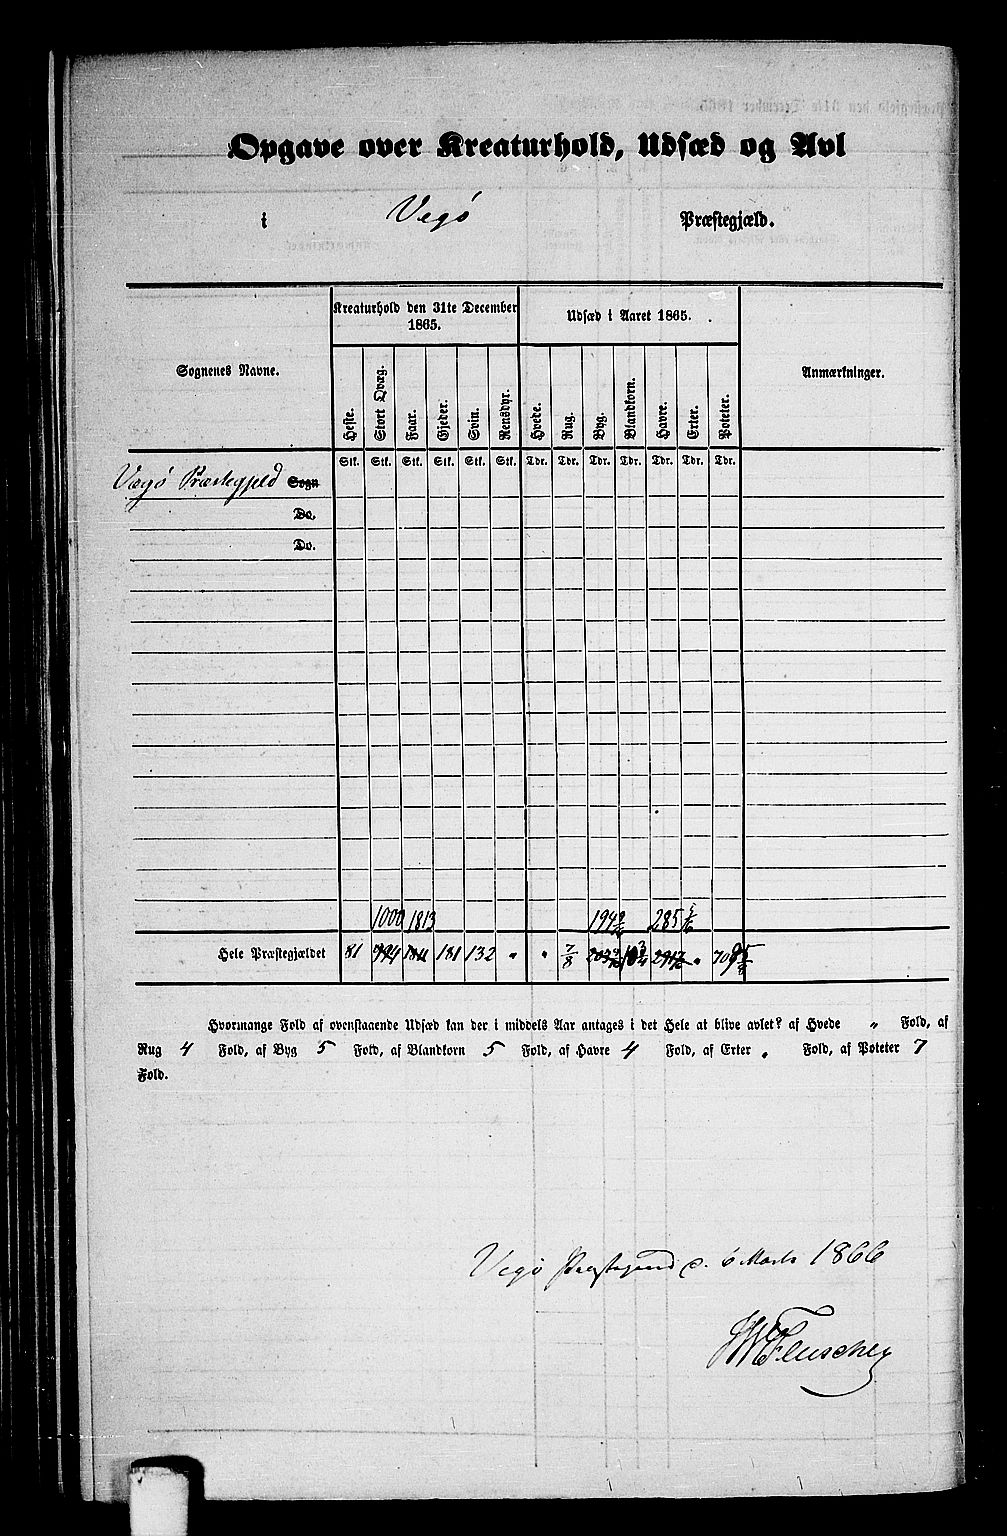 Opgave over Kreaturhold, Udsæd og Avl
i Vegø Præstegjæld.
Sognenes Navne.
Kreaturhold den 31te December
1865.
Udsæd i Aaret 1865.
Anmærkninger.
Heste. Stort Qvæg. Faar. Gjeder. Svin. Rensdyr. Hvede. Rug. Byg. Blandkorn. Havre. Erter. Poteter.
Stk. Stk. Stk. Stk. Stk. Stk. Tdr. Tdr. Tdr. Tdr. Tdr. Tdr. Tdr.
Vegø Præstegjeld Sogn
Do.
Do.
1000 1813 194 285
Hele Præstegjældet 81 994 181 132 " " 7/8 "
Hvormange Fold af ovenstaaende Udsæd kan der i middels Aar antages i det Hele at blive avlet? af Hvede " Fold, af
Rug 4 Fold, af Byg 5 Fold, af Blandkorn 5 Fold, af Havre 4 Fold, af Erter " Fold, af Poteter 7
Fold.
Vegø Præstegaard d. 6 Marts 1866
Fleischer